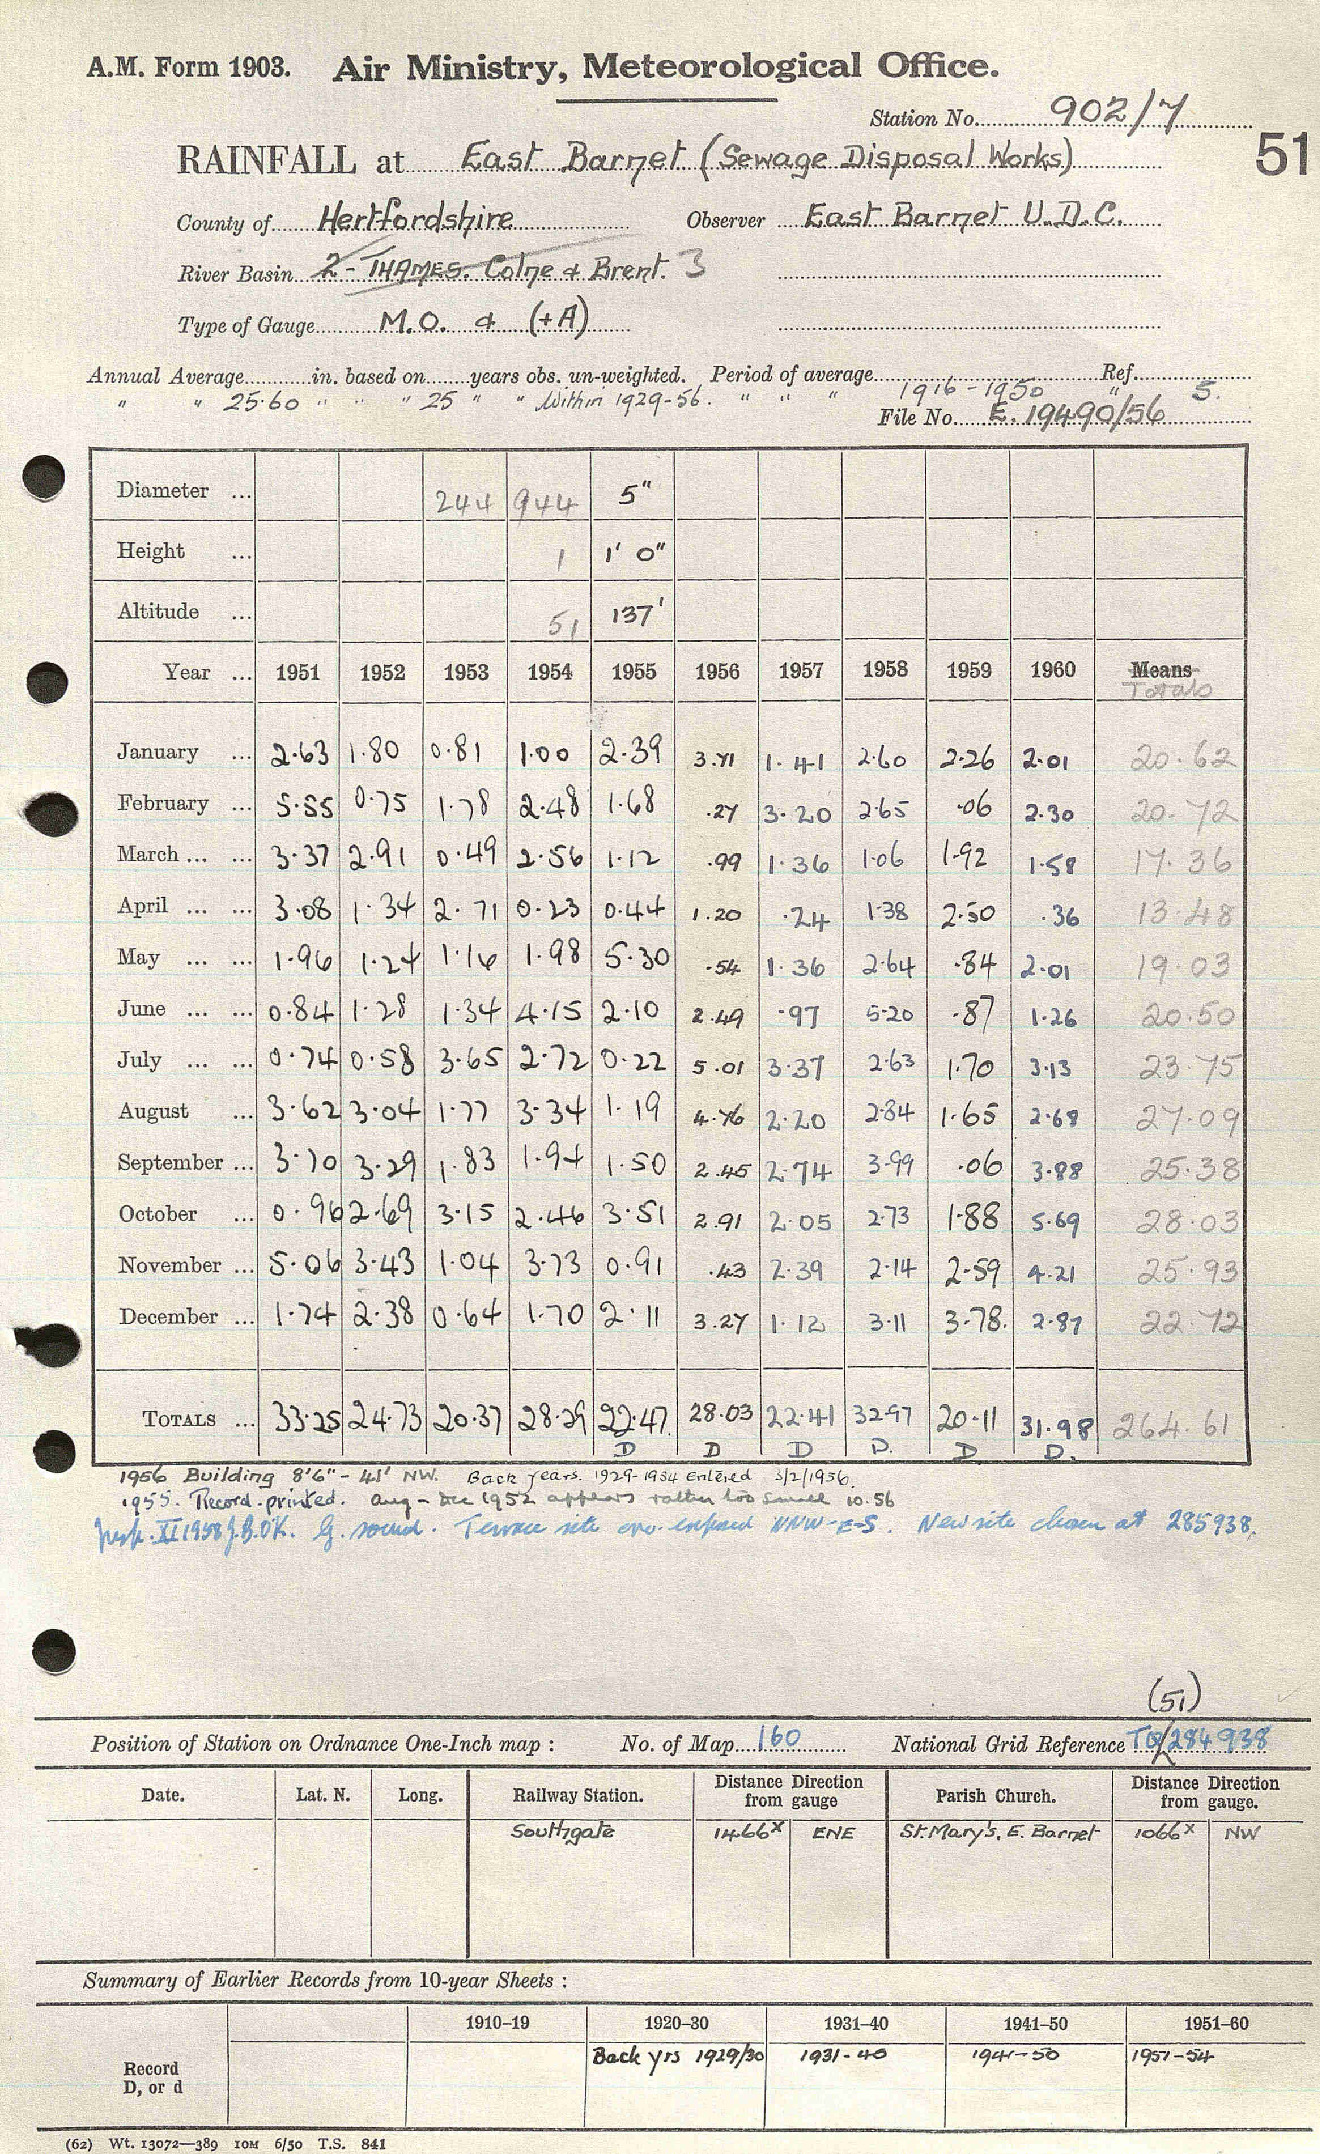 A.M. Form 1903. Air Ministry, Meteorological Office.
Station No. 902/7
51
RAINFALL at East Barnet (Sewage Disposal Works)
County of Hertfordshire Observer East Barnet U.D.C.
River Basin 2 - THAMES. Colne & Brent. 3
Type of Gauge M.O. & (+A)
Annual Average in. based on years obs. un-weighted. Period of average Ref.
" " 25.60 " " " 25 " " Within 1929-56. " " " 1916-1950 " 5.
File No. E. 19490/56
Diameter ... 244 944 5"
Height ... 1 1' 0"
Altitude ... 51 137'
Year ... 1951 1952 1953 1954 1955 1956 1957 1958 1959 1960 Means
Totals
January ... 2.63 1.80 0.81 1.00 2.39 3.71 1.41 2.60 2.26 2.01 20.62
February ... 5.55 0.75 1.78 2.48 1.68 .27 3.20 2.65 .06 2.30 20.72
March ... ... 3.37 2.91 0.49 2.56 1.12 .99 1.36 1.06 1.92 1.58 17.36
April ... ... 3.08 1.34 2.71 0.23 0.44 1.20 .24 1.38 2.50 .36 13.48
May ... ... 1.96 1.24 1.16 1.98 5.30 .54 1.36 2.64 .84 2.01 19.03
June ... ... 0.84 1.28 1.34 4.15 2.10 2.49 .97 5.20 .87 1.26 20.50
July ... ... 0.74 0.58 3.65 2.72 0.22 5.01 3.37 2.63 1.70 3.13 23.75
August ... 3.62 3.04 1.77 3.34 1.19 4.76 2.20 2.84 1.65 2.68 27.09
September ... 3.70 3.29 1.83 1.94 1.50 2.45 2.74 3.99 .06 3.88 25.38
October ... 0.96 2.69 3.15 2.46 3.51 2.91 2.05 2.73 1.88 5.69 28.03
November ... 5.06 3.43 1.04 3.73 0.91 .43 2.39 2.14 2.59 4.21 25.93
December ... 1.74 2.38 0.64 1.70 2.11 3.27 1.12 3.11 3.78. 2.87 22.72
TOTALS ... 33.25 24.73 20.37 28.29 22.47 28.03 22.41 32.97 20.11 31.98 264.61
D D D D. D D.
1956 Building 8'6" - 41' NW. Back years. 1929-1954 entered 3/2/1956.
1955. Record printed. Aug - Dec 1952 appears rather too small 10.56
Insp. XI 1958 J.B. OK. G. sound. Terrace site exposed NNW-E-S. New site chosen at 285938.
(51)
Position of Station on Ordnance One-Inch map : No. of Map 160 National Grid Reference TQ/284938
Date. Lat. N. Long. Railway Station. Distance from gauge Direction Parish Church. Distance from gauge. Direction
Southgate 1466x ENE St. Mary's, E. Barnet 1066x NW
Summary of Earlier Records from 10-year Sheets :
1910–19 1920–30 1931–40 1941–50 1951–60
Record D, or d Back yrs 1929/30 1931-40 1941-50 1951-54
(62) Wt. 13072—389 10M 6/50 T.S. 841